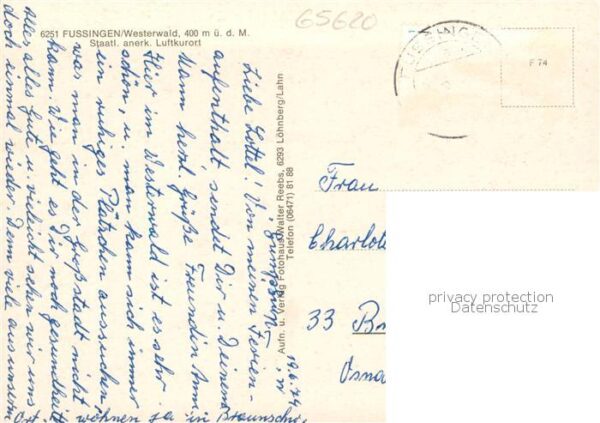 65620
6251 FUSSINGEN/Westerwald, 400 m ü. d. M.
Staatl. anerk. Luftkurort
F 74
19.6.74
Liebe Lottel! Von meinen Ferien-
aufenthalt sendet Dir u. Deinem
Mann herzl. Grüße Freundin Anni
Hier im Westerwald ist es sehr
schön, u. man kann sich immer
ein ruhiges Plätzchen aussuchen,
was man in der Großstadt nicht
kann. Wie geht es Dir noch gesundheitl.
alles alles Gute u. vieleicht sehen wir uns
doch einmal wieder. Denn viele aus unserm
Ort wohnen ja in Braunschw.
Aufn. u. Verlag Fotohaus Walter Reebs, 6293 Löhnberg/Lahn
Telefon (06471) 81 88
Frau
Charlot
33 Br
Osna
privacy protection
Datenschutz